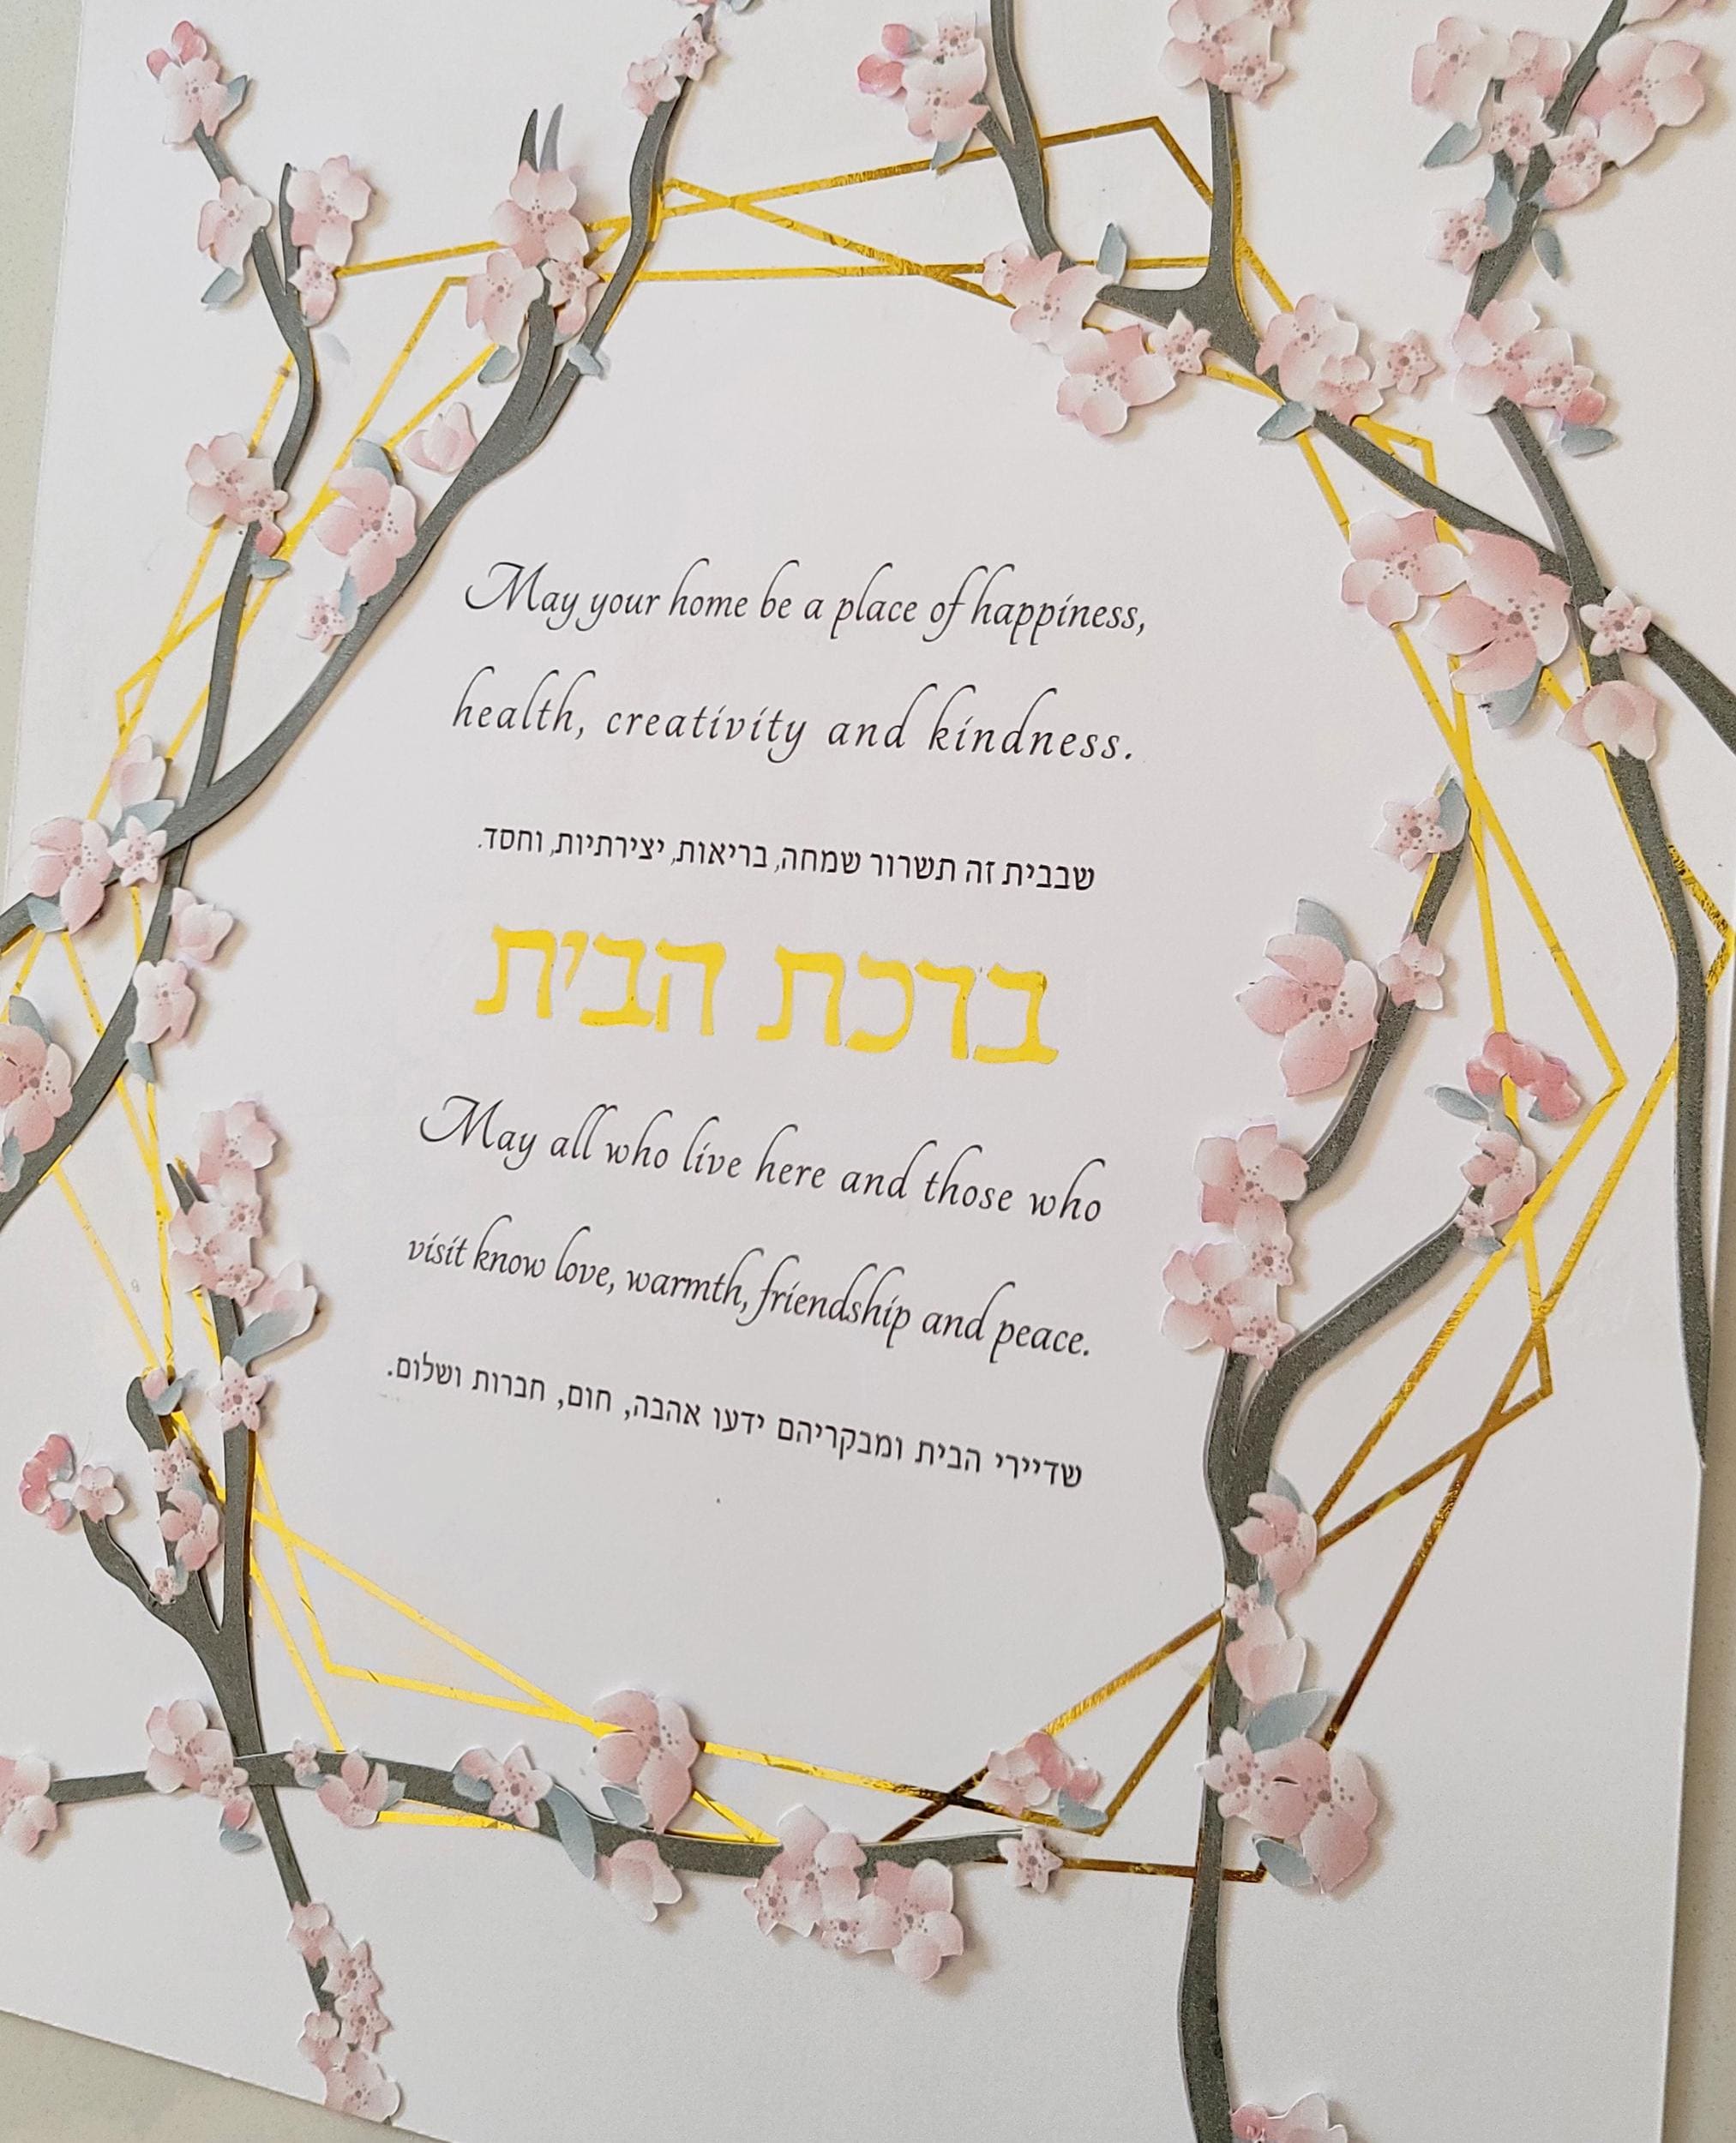 May your home be a place of happiness,
health, creativity and kindness.
שבבית זה תשרור שמחה, בריאות, יצירתיות, וחסד.
ברכת הבית
May all who live here and those who
visit know love, warmth, friendship and peace.
שדיירי הבית ומבקריהם ידעו אהבה, חום, חברות ושלום.